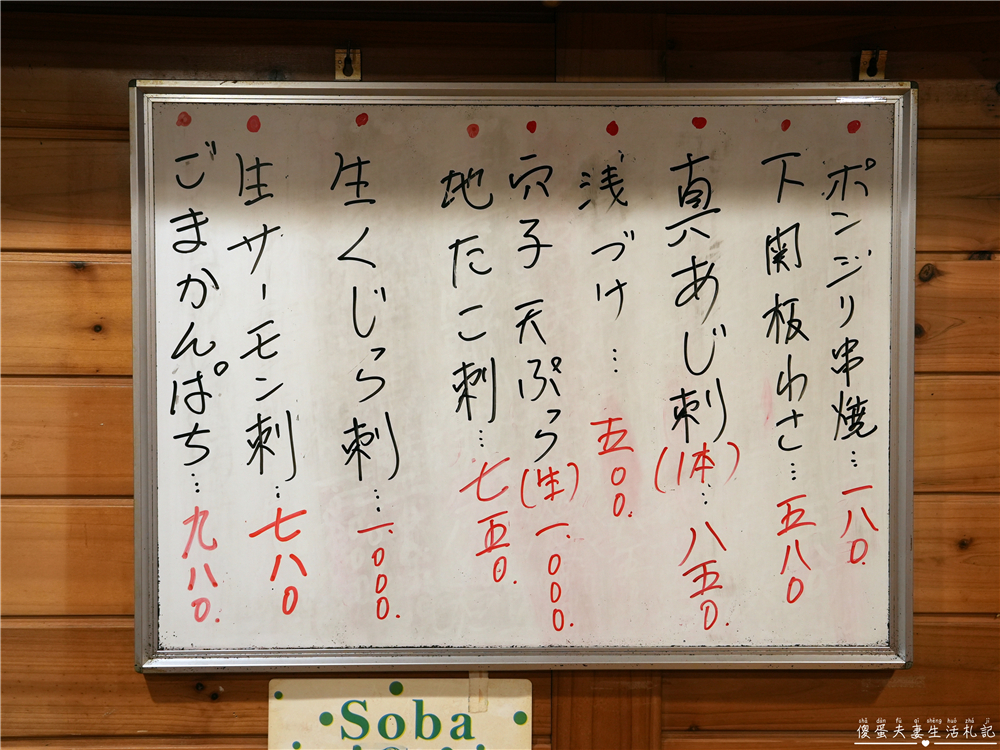 ポンジリ串焼…一八〇
下関板わさ…五八〇
真あじ刺(1本)…八五〇
浅づけ…五〇〇.
穴子天ぷら(生)一.〇〇〇.
地たこ刺…七五〇.
生くじら刺…一.〇〇〇.
生サーモン刺…七八〇
ごまかんぱち…九八〇.
Soba
shǎ dàn fū qī shēng huó zhá jì
傻蛋夫妻生活札記